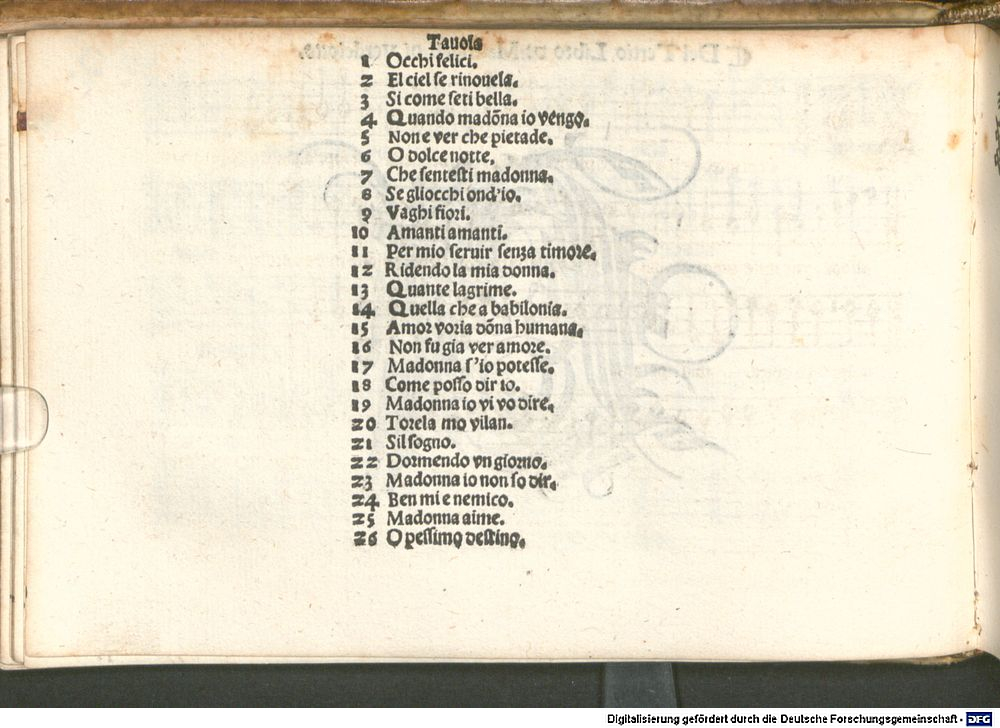 Tauola
1 Occhi felici.
2 El ciel se rinouela.
3 Si come seti bella.
4 Quando madõna io vengo.
5 Non e ver che pietade.
6 O dolce notte.
7 Che sentesti madonna.
8 Se gliocchi ond'io.
9 Vaghi fiori.
10 Amanti amanti.
11 Per mio seruir senza timore.
12 Ridendo la mia donna.
13 Quante lagrime.
14 Quella che a babilonia.
15 Amor voria dõna humana.
16 Non fu gia ver amore.
17 Madonna s'io potesse.
18 Come posso dir io.
19 Madonna io vi vo dire.
20 Torela mo vilan.
21 Sil sogno.
22 Dormendo vn giorno.
23 Madonna io non so dir.
24 Ben mi e nemico.
25 Madonna aime.
26 O pessimo destino.
Digitalisierung gefördert durch die Deutsche Forschungsgemeinschaft - DFG